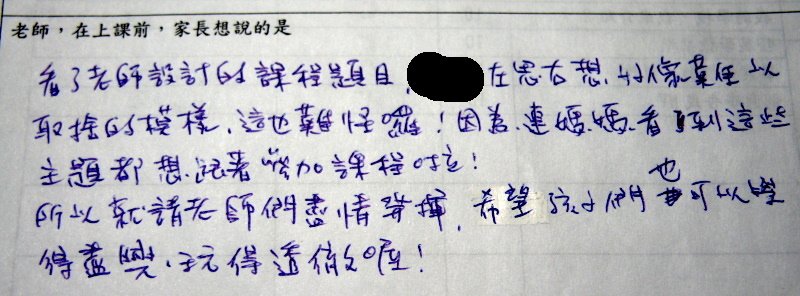 老師，在上課前，家長想說的是
看了老師設計的課程題目，在思右想，好像葉佳以
取捨的模樣，這也難怪囉！因為，連媽媽看了到這些
主題都想跟著參加課程呢！
所以就請老師們盡情發揮，希望孩子們也可以學
得盡興、玩得透徹喔！